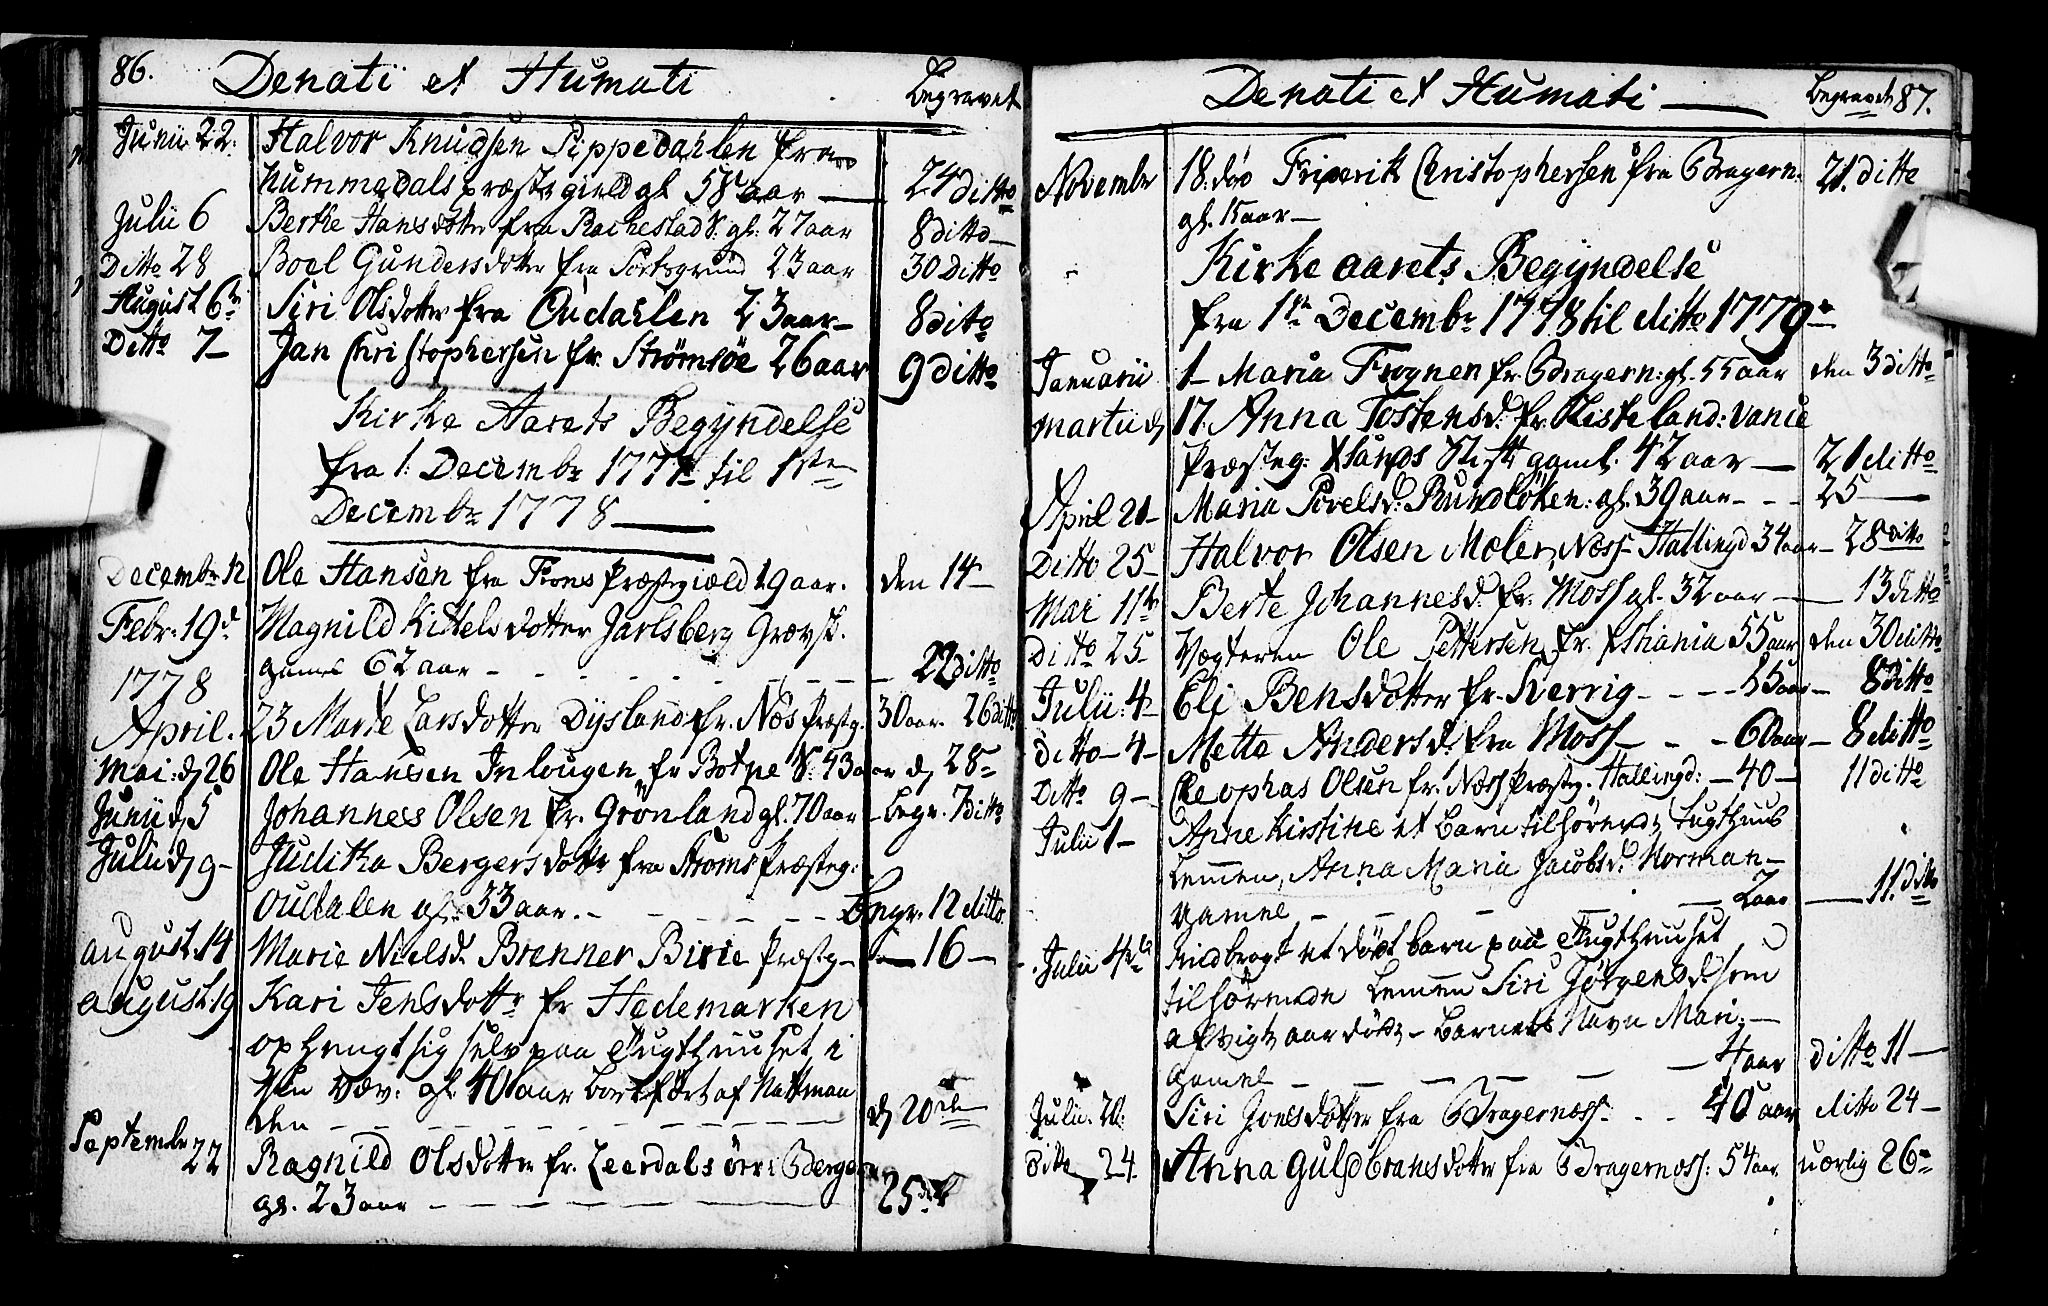 86. Denati et Humati Begravet
Junii 22. Halvor Knudsen Pippedahlen fra
Nummedals præstegield gl. 58 aar — 24 ditto
Julii 6 Berthe Hansdotter fra Rachestad S: gl: 27 aar 8 ditto —
Ditto 28 Boel Gundersdotter fra Portsgrund 23 aar 30 Ditto
August 6te Siri Olsdotter fra Oudahlen 23 aar — 8 dito
Ditto 7 — Jan Christophersen fr. Strømsöe 26 aar 9 ditto
Kirke Aarets Begyndelse
fra 1: Decembr 1777 til 1ste
Decembr 1778 —
Decembr 12 Ole Hansen fra Præstegiæld 29 aar. den 14 —
Febr: 19d Magnild Kittelsdotter Jarlsberg Grævsk.
1778 gamel 62 aar — 22 ditto
April. 23 Marte Larsdotter Dijsland fr. Nös Præsteg. 30 aar. 26 ditto
Mai: d 26 Ole Hansen Inlougen fr Botne S: 43 aar d 28 —
Junii d 5 Johannes Olsen fr. Grönland gl. 70 aar — Begr. 7 ditto
Julii d 9 — Juditha Bergersdottr fra Ströms Præsteg:
Oudalen gl. 33 aar. — Begr. 12 ditto.
august. 14 Marie Nielsd. Brenner Birie Præsteg — 16 —
august. 19 Kari Jensdottr fr Hedemarken
ophengt sig selv paa Tugthuuset i
sin Væv: gl. 40 aar bortfört af Nattman
den — d 20de
Septembr 22 Ragnild Olsdotter fr. Leerdalsörre Bergen
gl. 23 aar — 25 ditto
Denati et Humati — Begravet 87.
November 18. döo Friderik Christophersen fra Bragern: 21. ditte
gl. 15 aar —
Kirke aarets Begyndelse
fra 1ste Decembr 1778 til ditto 1779
Januarii 1 — Maria Frognen fr. Bragern: gl. 55 aar den 3 ditto
Martii d 17. Anna Tostensd. fr. Listeland: Vance
Præsteg: Xsands Stift gaml. 42 aar — 21 ditto
April 21 — Maria Povelsd: Bundlöken: gl. 39 aar — 25 —
Ditto 25 — Halvor Olsen Moler, Næss Hallingd 34 aar — 28 ditto
Mai 11te Berte Johannesd. fr. Moss gl. 32 aar — 13 ditto
Ditto 25 — Vægteren Ole Pettersen fr. Xstiania 55 aar den 30 ditto
Julii. 4 — Eli Bensdotter fr. Sverrig — 55 aar — 8 ditto
ditto — 4 — Mette Andersd. fra Moss — 60 aar — 8 ditto
Ditto 9 — Cleophas Olsen fr. Næss Præsteg. Hallingd: — 40 — 11 ditto
Julii 1 — Anne Kirstine et Barn tilhörende Tugthuus
Lemmen, Anna Maria Jacobsd. Norman —
Gamel — 2 aar — 11. ditto
Julii 4de indbragt et dödt barn paa Tugthuuset
tilhörende Lemmen Siri Jörgensd. som
afvigte aar döde — Barnets Navn Mari. —
gamel — aar ditto 11 —
Julii. 20. Siri Jonsdotter fra Bragernæss — 40 aar ditto 24 —
Ditto 24. Anna Guldbransdotter fra Bragernæss: 54 aar uærlig 26